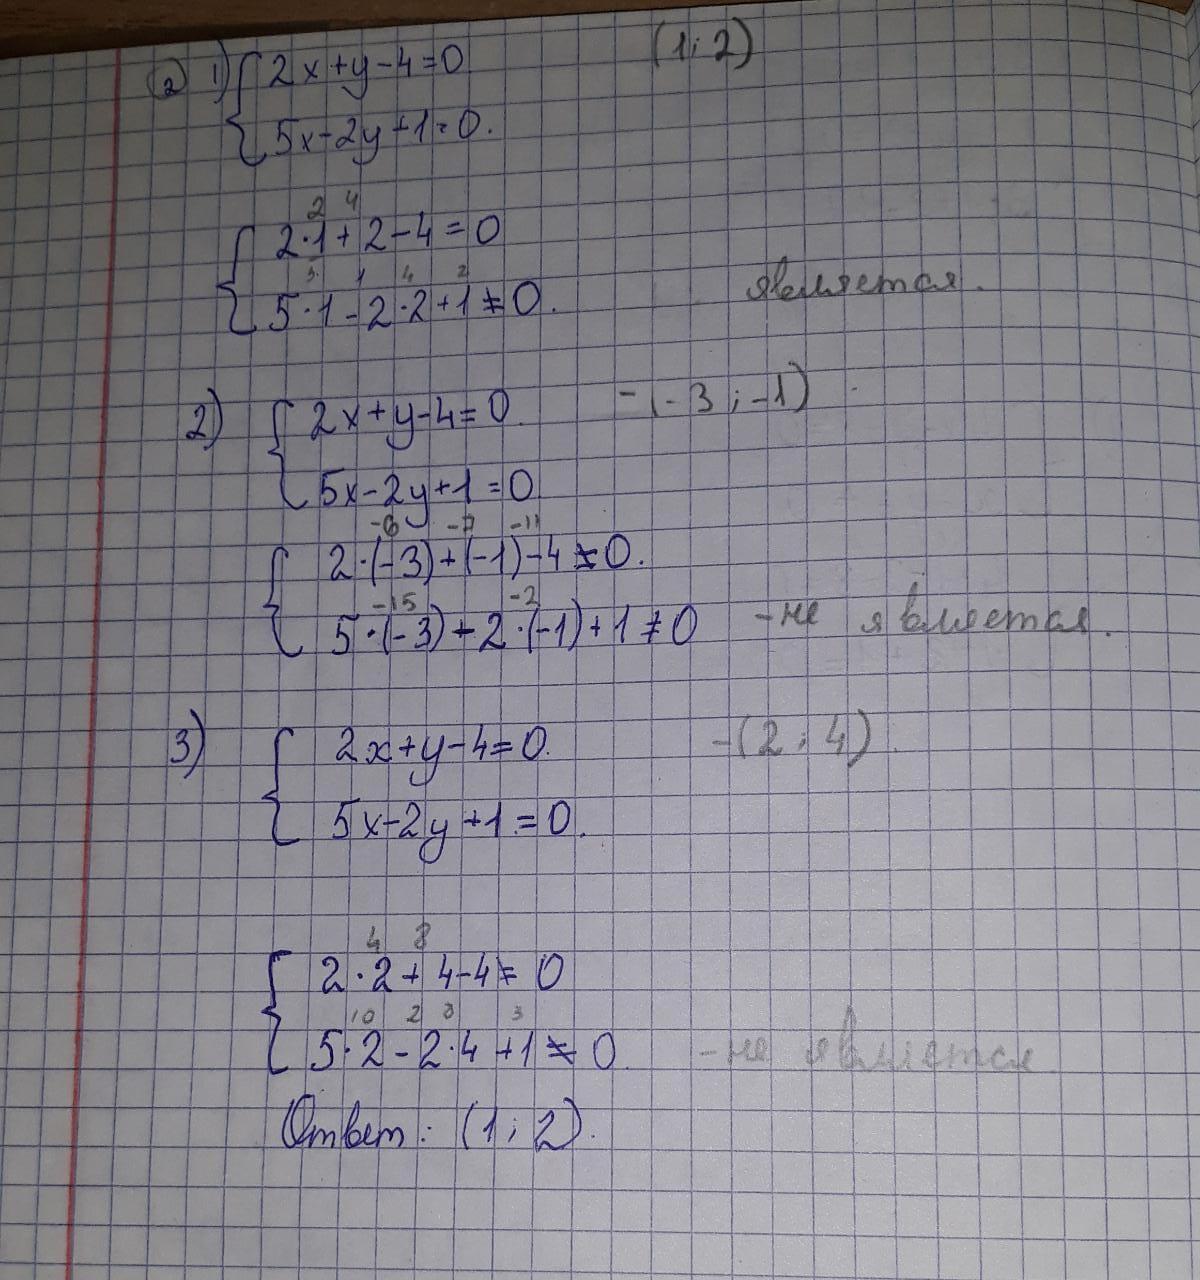 ② 1) { 2x+y-4=0 (1; 2)
5x-2y+1=0.
2 4
{ 2·1+2-4=0
5 1 4 2
5·1-2·2+1≠0. является.
2) { 2x+y-4=0. - (-3; -1)
5x-2y+1=0
-6 -7 -11
{ 2·(-3)+(-1)-4≠0.
-15 -2
5·(-3)-2·(-1)+1≠0 - не является.
3) { 2x+y-4=0. - (2; 4).
5x-2y+1=0.
4 8
{ 2·2+4-4≠0
10 2 8 3
5·2-2·4+1≠0. - не является.
Ответ: (1; 2).